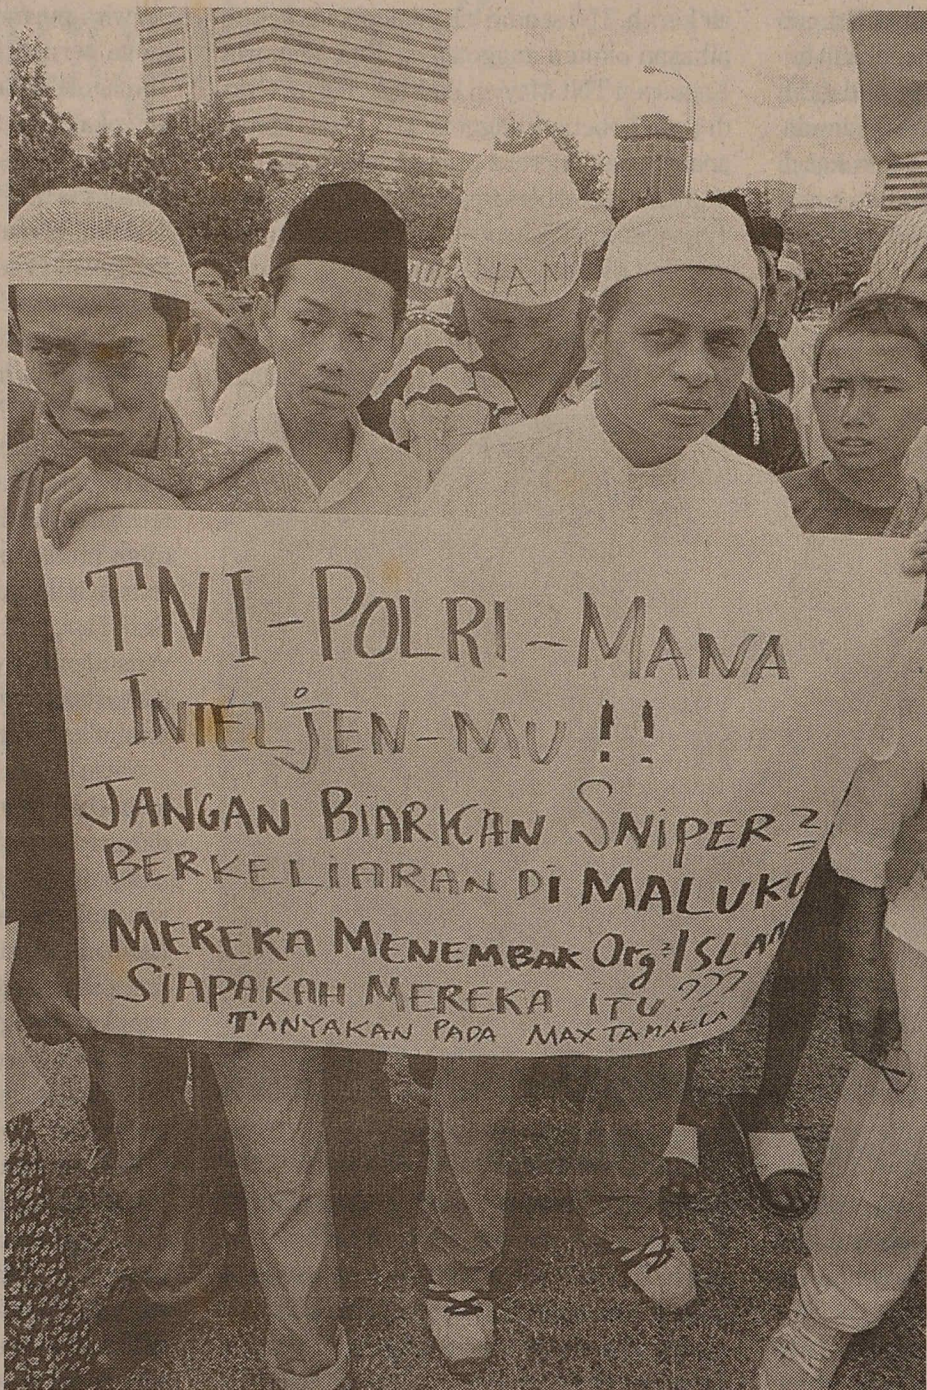 HAM
TNI-POLRI-MANA
INTELJEN-MU !!
JANGAN BIARKAN SNIPER2
BERKELIARAN DI MALUKU
MEREKA MENEMBAK Org2 ISLAM
SIAPAKAH MEREKA ITU???
TANYAKAN PADA MAX TAMAELA